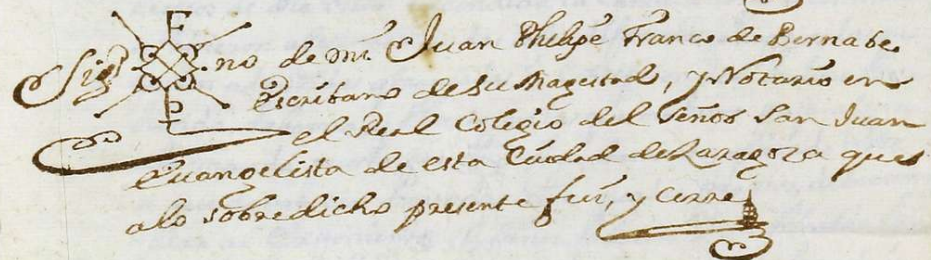 Sig no de mi Juan Phelipe Franco de Bernabe
Escribano de Su Magestad, y Notario en
el Real Colegio del Señor San Juan
Euangelista de esta Ciudad de Zaragoza que
alo sobredicho presente fui, y cerre